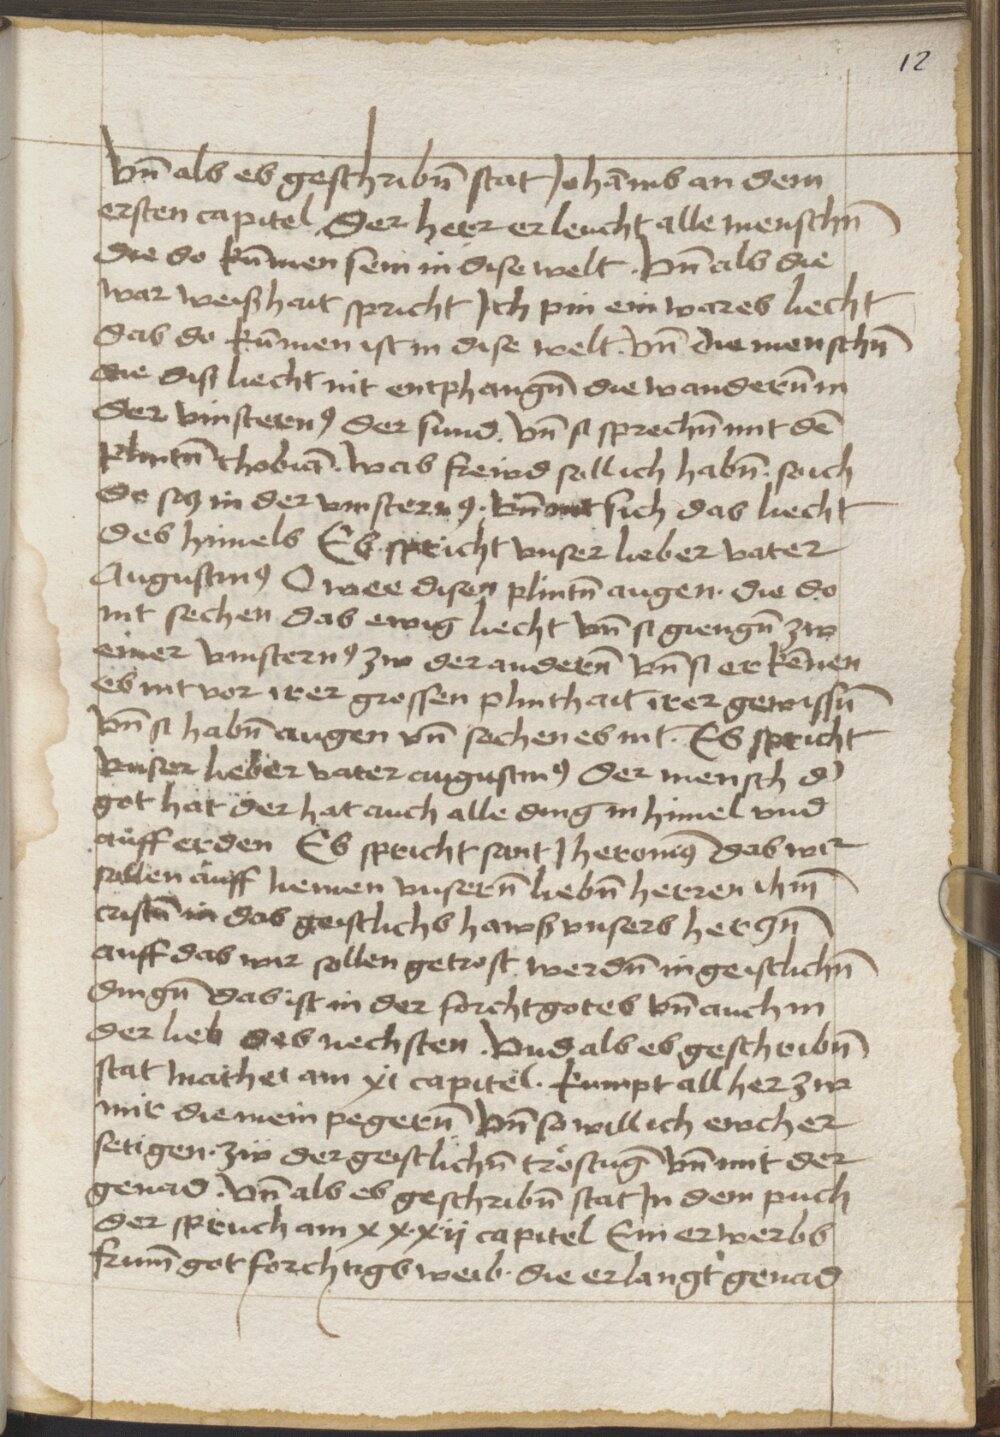 12
Vn̄ als es geschribn̄ stat Johān̄s an dem
ersten capitel Der herr erleucht alle menschn̄
die do kūmen sein in dise welt . Vn̄ als die
war weißhait spricht Ich pin ein wares liecht
das do kūmen ist in dise welt . Vn̄ die menschn̄
die diß liecht nit entphangn̄ die wanderēn in
der vinsternꝰ der sund . Vn̄ si sprechn̄ mit dē
plintn̄ thobiā . was freẅd soll ich habn̄ . so ich
do sitz in der vinsternꝰ . Vn̄ nit sich das liecht
des himels Es spricht vnser lieber vater
Augustinꝰ O wee disen plintn̄ augen . die do
nit sechen das ewig liecht Vn̄ si giengn̄ zw
einer vinsternꝰ zw der anderēn Vn̄ si erkēnen
es nit vor irer grossen plinthait irer gewissn̄
Vn̄ si habn̄ augen vn̄ sechen es nit . Es spricht
vnser lieber vater augustinꝰ Der mensch d'
got hat der hat auch alle ding in himel vnd
auff erden Es spricht sant Iheronimꝰ das wir
sollen auff nemen vnserēn liebn̄ herren ihm̄
cristū in das geistlichs hawß vnsers hertzn̄
auff das wir sollen getrost werdn̄ in geistlichn̄
dingn̄ das ist in der forcht gotes Vn̄ auch in
der lieb des nechsten . Vnd als es geschribn̄
stat Mathei am xi capitel . kumpt all her zw
mir die mein pegerēn Vn̄ so will ich ewch er
setigen . zẅ der geistlichn̄ tröstuḡ Vn̄ mit der
genad . Vn̄ als es geschribn̄ stat In dem puch
der spruch am xxxij capitel Ein erwerbs
frum̄ got forchtigs weib . die erlangt genad